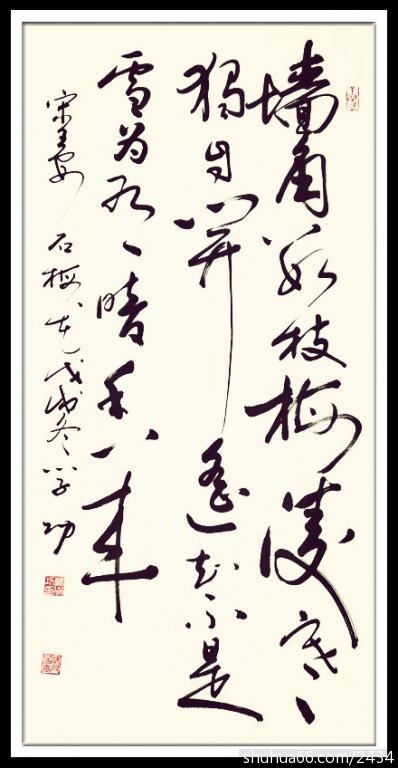 墙角数枝梅凌寒
独自开遥知不是
雪为有暗香来
宋王安石梅花戊戌冬学功
shuhua66.com/2434